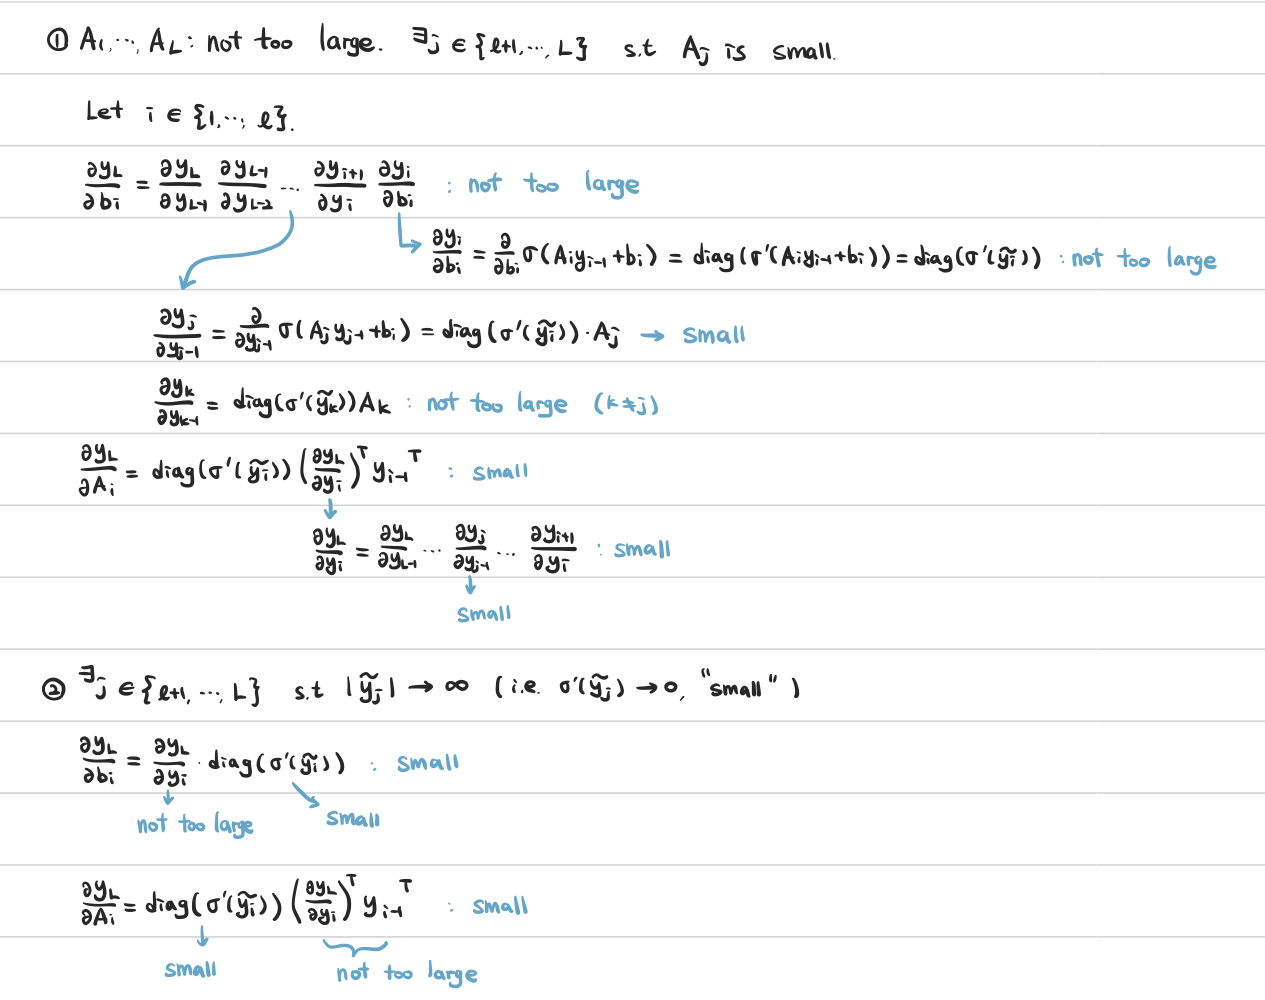 ① A₁, ⋯, A_L : not too large. ∃j ∈ {ℓ+1, ⋯, L} s.t A_j is small.
Let i ∈ {1, ⋯, ℓ}.
∂y_L/∂b_i = ∂y_L/∂y_{L-1} ∂y_{L-1}/∂y_{L-2} ⋯ ∂y_{i+1}/∂y_i ∂y_i/∂b_i : not too large
∂y_i/∂b_i = ∂/∂b_i σ(A_i y_{i-1} + b_i) = diag(σ'(A_i y_{i-1} + b_i)) = diag(σ'(ỹ_i)) : not too large
∂y_j/∂y_{j-1} = ∂/∂y_{j-1} σ(A_j y_{j-1} + b_i) = diag(σ'(ỹ_i)) · A_j → small
∂y_k/∂y_{k-1} = diag(σ'(ỹ_k)) A_k : not too large (k ≠ j)
∂y_L/∂A_i = diag(σ'(ỹ_i)) (∂y_L/∂y_i)^T y_{i-1}^T : small
∂y_L/∂y_i = ∂y_L/∂y_{L-1} ⋯ ∂y_j/∂y_{j-1} ⋯ ∂y_{i+1}/∂y_i : small
small
② ∃j ∈ {ℓ+1, ⋯, L} s.t |ỹ_j| → ∞ (i.e. σ'(ỹ_j) → 0, "small")
∂y_L/∂b_i = ∂y_L/∂y_i · diag(σ'(ỹ_i)) : small
not too large small
∂y_L/∂A_i = diag(σ'(ỹ_i)) (∂y_L/∂y_i)^T y_{i-1}^T : small
small not too large